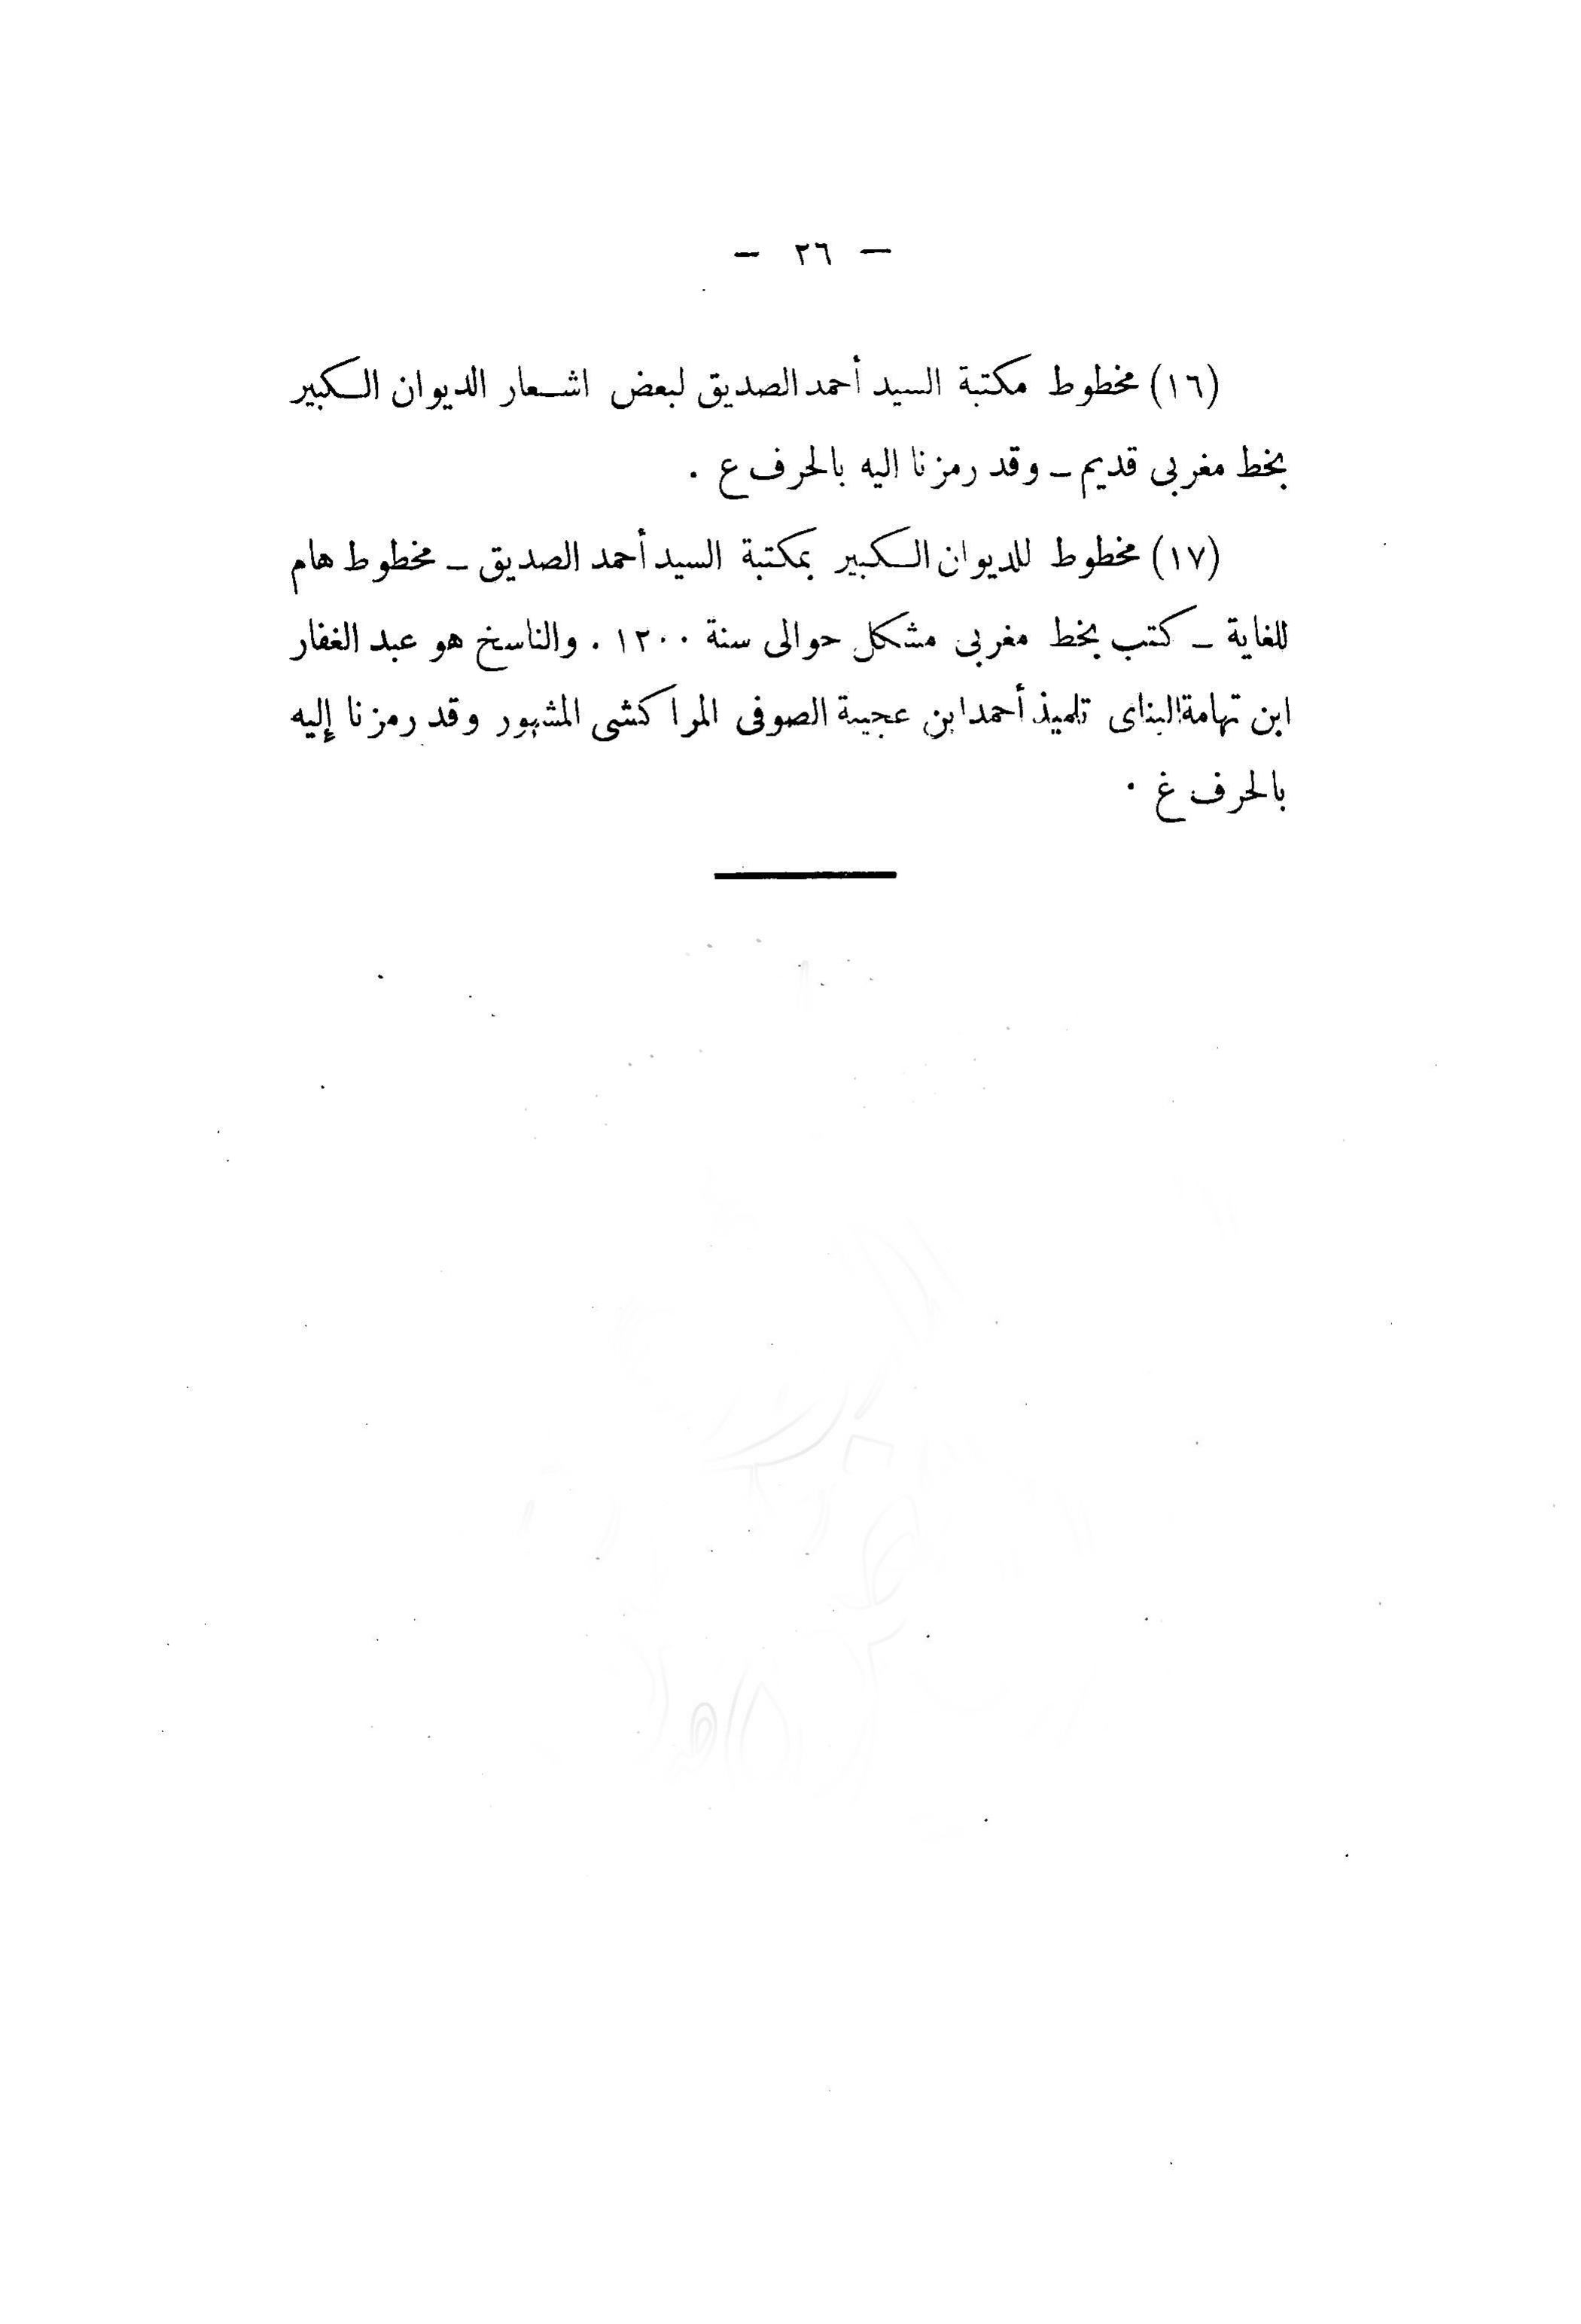 — ٢٦ —
(١٦) مخطوط مكتبة السيد أحمد الصديق لبعض اشعار الديوان الكبير
بخط مغربى قديم — وقد رمزنا اليه بالحرف ع .
(١٧) مخطوط للديوان الكبير بمكتبة السيد أحمد الصديق — مخطوط هام
للغاية — كتب بخط مغربى مشكل حوالى سنة ١٢٠٠ . والناسخ هو عبد الغفار
ابن تهامة البناى تلميذ أحمد ابن عجيبة الصوفى المراكشى المشهور وقد رمزنا إليه
بالحرف غ .